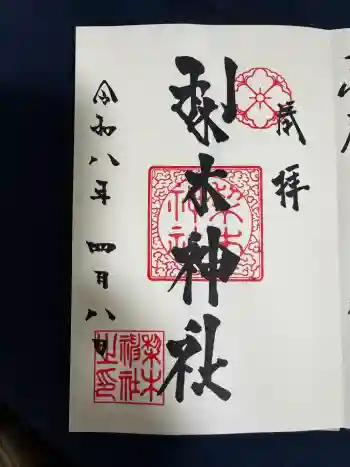 奉拝
梨木神社
令和八年 四月八日
梨木神社
梨木神社之印